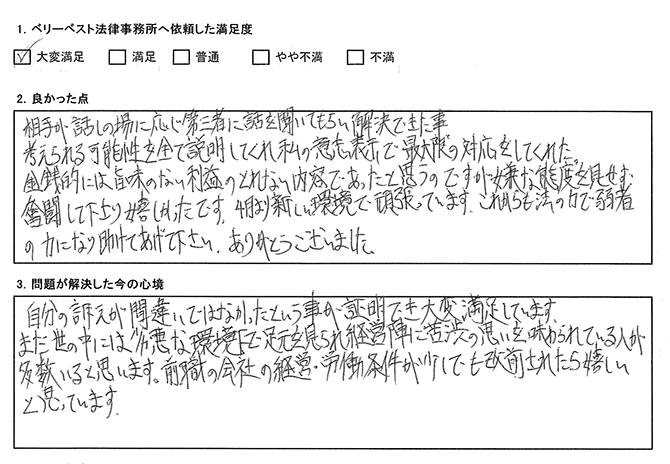 1. ベリーベスト法律事務所へ依頼した満足度
☑ 大変満足 □ 満足 □ 普通 □ やや不満 □ 不満
2. 良かった点
相手が話しの場に応じ第三者に話を聞いてもらい解決できた事
考えられる可能性を全て説明してくれ私の意志表示で最大限の対応をしてくれた
金銭的には旨味のない利益のとれない内容であったと思うのですが嫌な態度を見せず
奮闘して下さり嬉しかったです。4月より新しい環境で頑張っています。これからも法の力で弱者
の力になり助けてあげて下さい。ありがとうございました。
3. 問題が解決した今の心境
自分の訴えが間違いではなかったという事が証明でき大変満足しています。
まだ世の中には劣悪な環境下で足元を見られ経営陣に苦渋の思いを味わられている人が
多数いると思います。前職の会社の経営・労働条件が少しでも改善されたら嬉しい
と思っています。